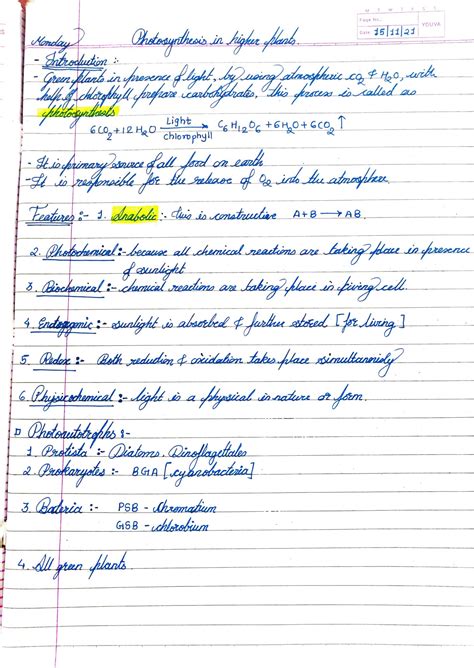 M T W T F S S
Page No.:
Date: 15/11/21 YOUVA
Monday Photosynthesis in higher plants.
- Introduction :-
- Green plants in presence of light, by using atmospheric CO2 & H2O, with
help of chlorophyll prepare carbohydrates, this process is called as
photosynthesis
6CO2+12H2O Light chlorophyll → C6H12O6 + 6H2O + 6CO2 ↑
- It is primary source of all food on earth
- It is responsible for the release of O2 into the atmosphere.
Features :- 1. Anabolic :- this is constructive A+B → AB.
2. Photochemical :- because all chemical reactions are taking place in presence
of sunlight
3. Biochemical :- chemical reactions are taking place in living cell.
4. Endergonic :- sunlight is absorbed & further stored [for living]
5. Redox :- Both reduction & oxidation takes place simultaneously
6. Physicochemical :- light is a physical in nature or form.
Photoautotrophs :-
1. Protista :- Diatoms, Dinoflagellates
2. Prokaryotes :- BGA [cyanobacteria]
3. Bacteria :- PSB - chromatium
GSB - chlorobium
4. All green plants.